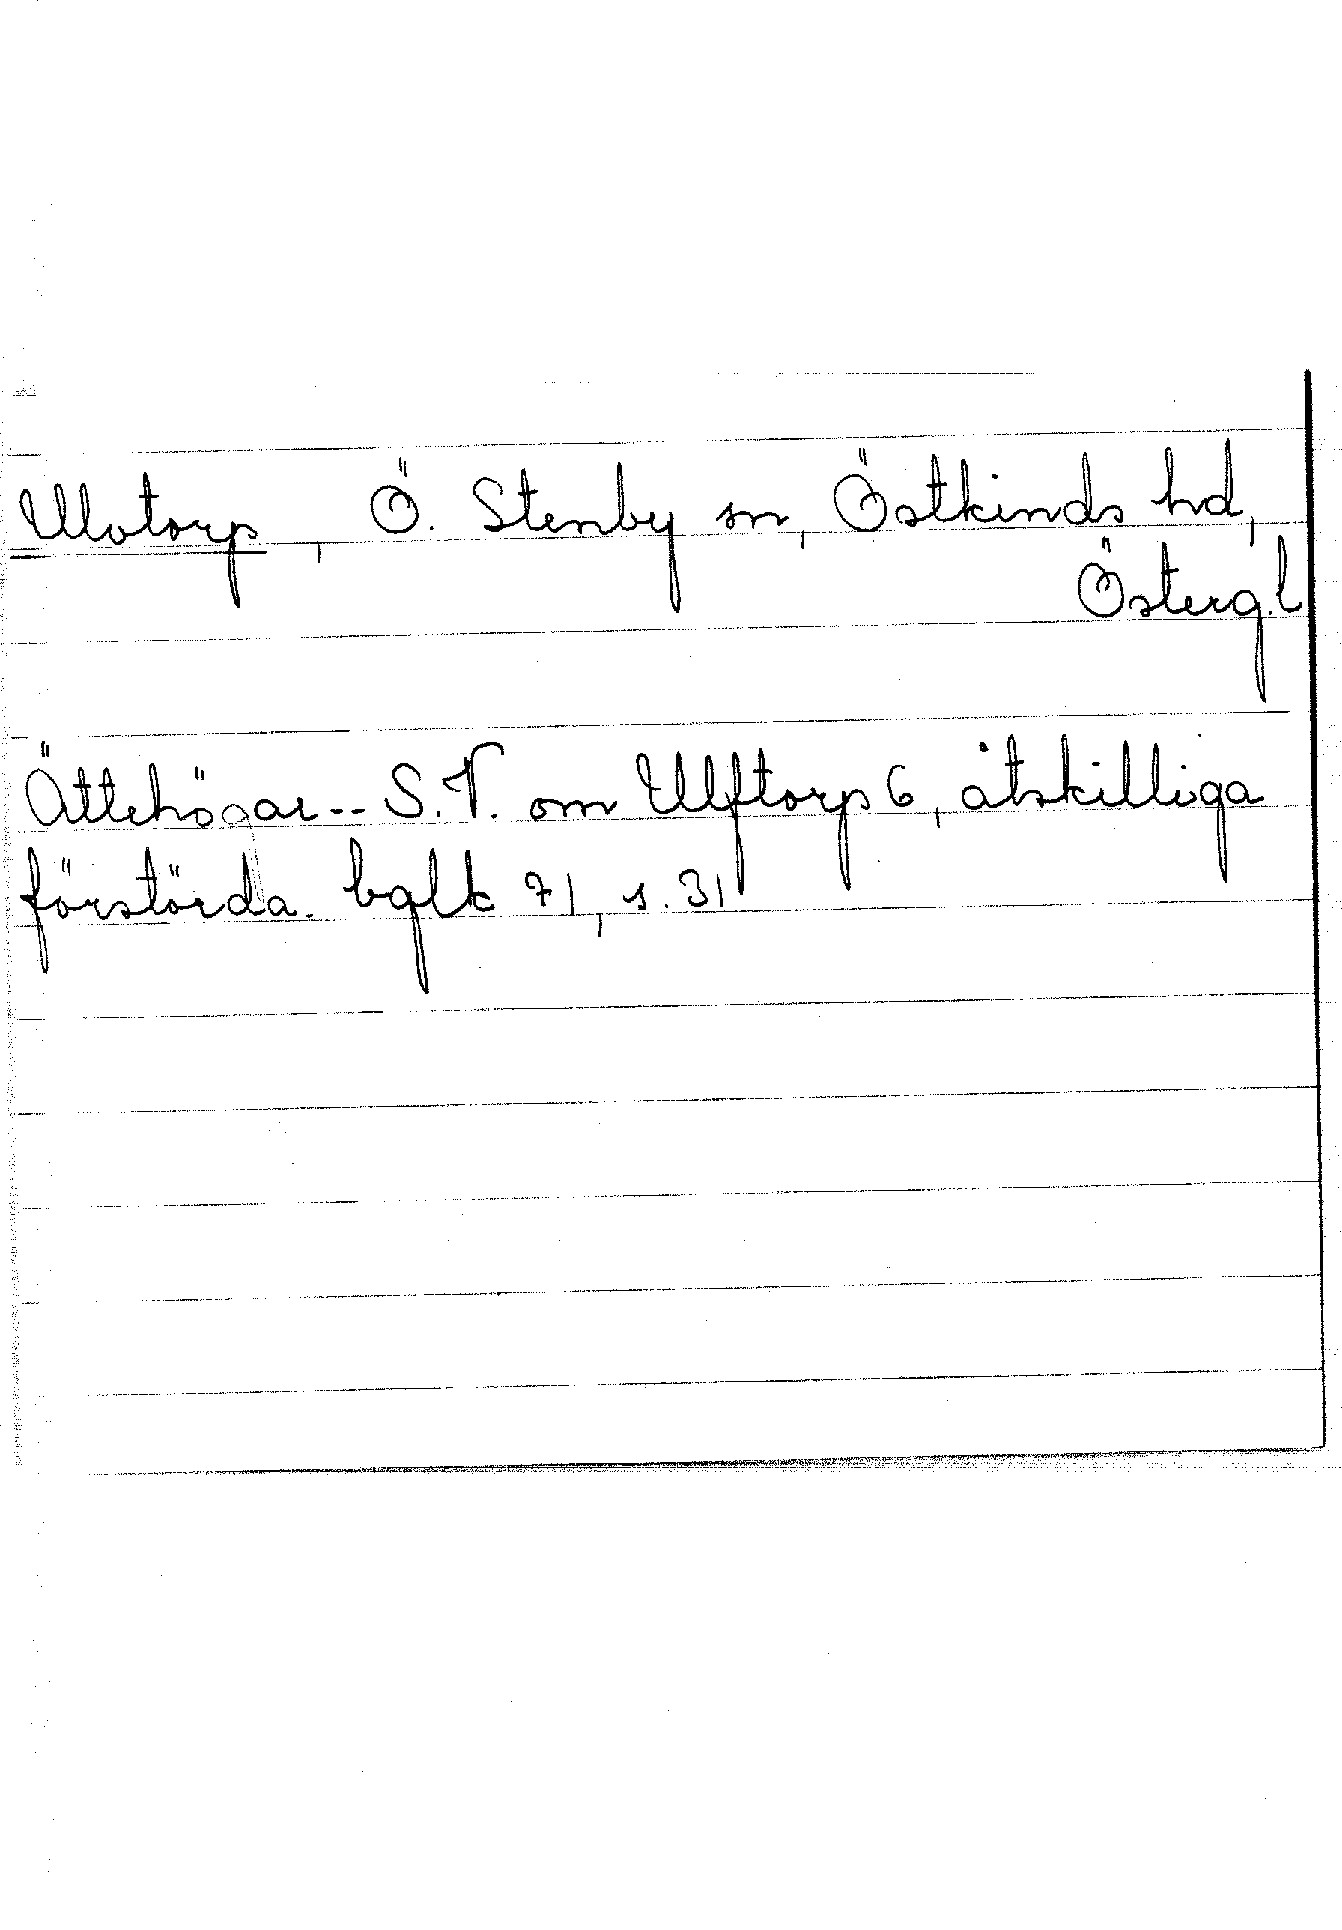 Ulvtorp, Ö. Stenby sn, Östkinds hd,
Österg.l
Ättehögar -- S.V. om Ulftorp 6, åtskilliga
förstörda. bglk 71, s. 31